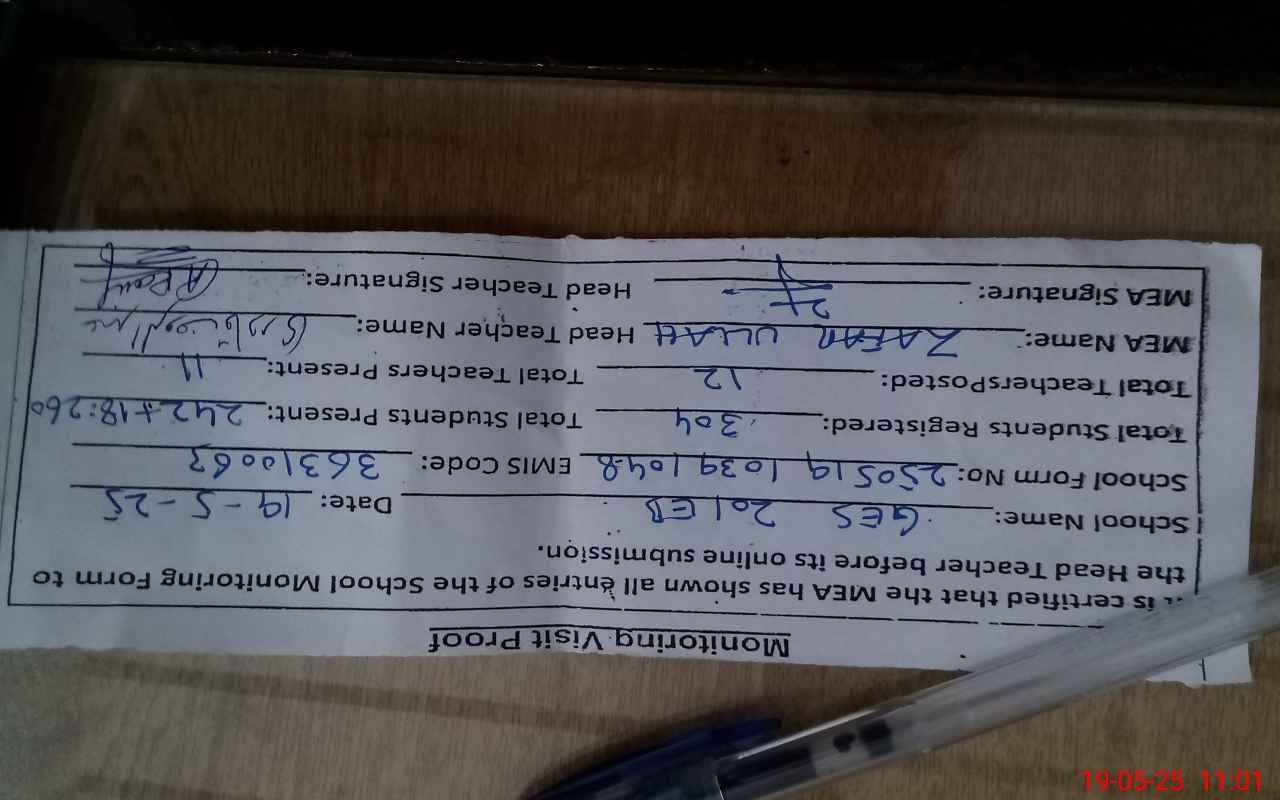 Monitoring Visit Proof
is certified that the MEA has shown all entries of the School Monitoring Form to
the Head Teacher before its online submission.
School Name: GES 201EB Date: 19-5-25
School Form No: 25051910391048 EMIS Code: 36310063
Total Students Registered: 304 Total Students Present: 242+18:260
Total TeachersPosted: 12 Total Teachers Present: 11
MEA Name: ZAFAR ULLAH Head Teacher Name:
MEA Signature: Head Teacher Signature:
19-05-25 11:01